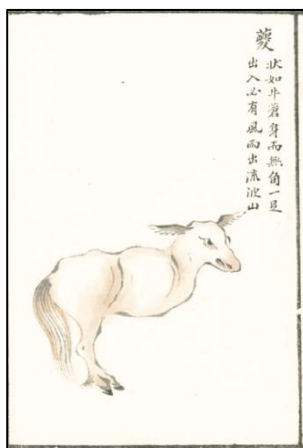 夔
狀如牛蒼身而無角一足
出入必有風雨出流波山